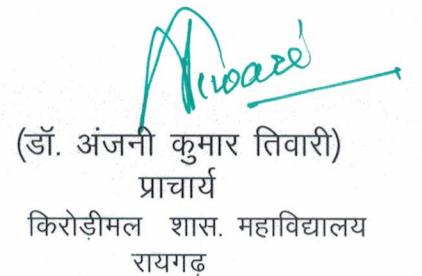 Tiwari
(डॉ. अंजनी कुमार तिवारी)
प्राचार्य
किरोड़ीमल शास. महाविद्यालय
रायगढ़